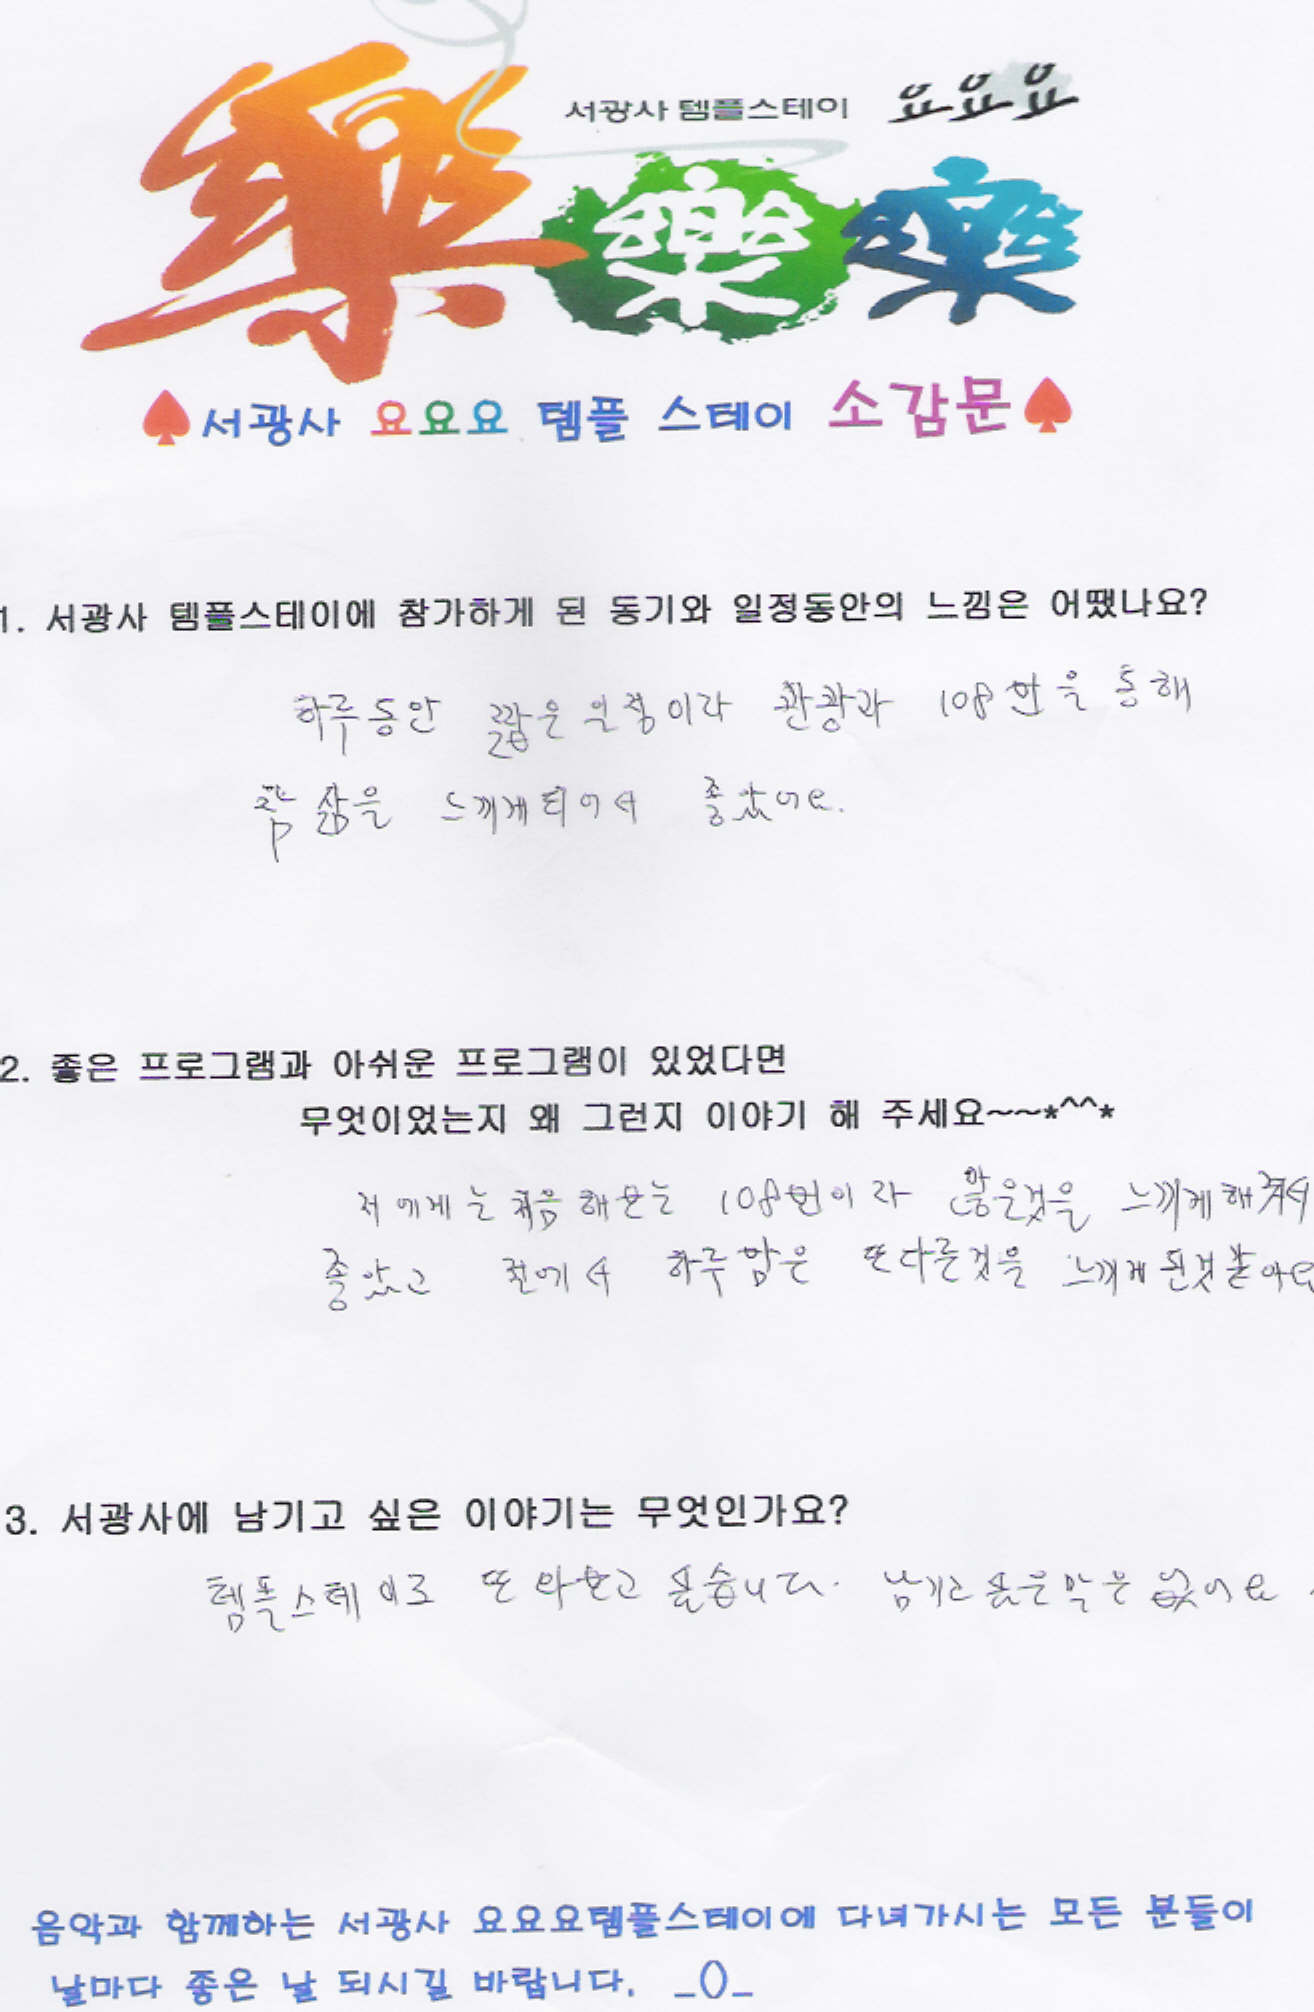 서광사 템플스테이 요요요
樂 樂 樂
♠서광사 요요요 템플 스테이 소감문♠
1. 서광사 템플스테이에 참가하게 된 동기와 일정동안의 느낌은 어땠나요?
하루동안 짧은 일정이라 관광과 108번을 통해
삶을 느끼게되어서 좋았어요.
2. 좋은 프로그램과 아쉬운 프로그램이 있었다면
무엇이었는지 왜 그런지 이야기 해 주세요~~*^^*
저에게는 처음해보는 108번이라 많은것을 느끼게해줘서
좋았고 절에서 하루밤은 또다른것을 느끼게된것같아요
3. 서광사에 남기고 싶은 이야기는 무엇인가요?
템플스테이로 또 와보고 싶습니다. 남기고싶은말은 없어요.
음악과 함께하는 서광사 요요요템플스테이에 다녀가시는 모든 분들이
날마다 좋은 날 되시길 바랍니다. _()_